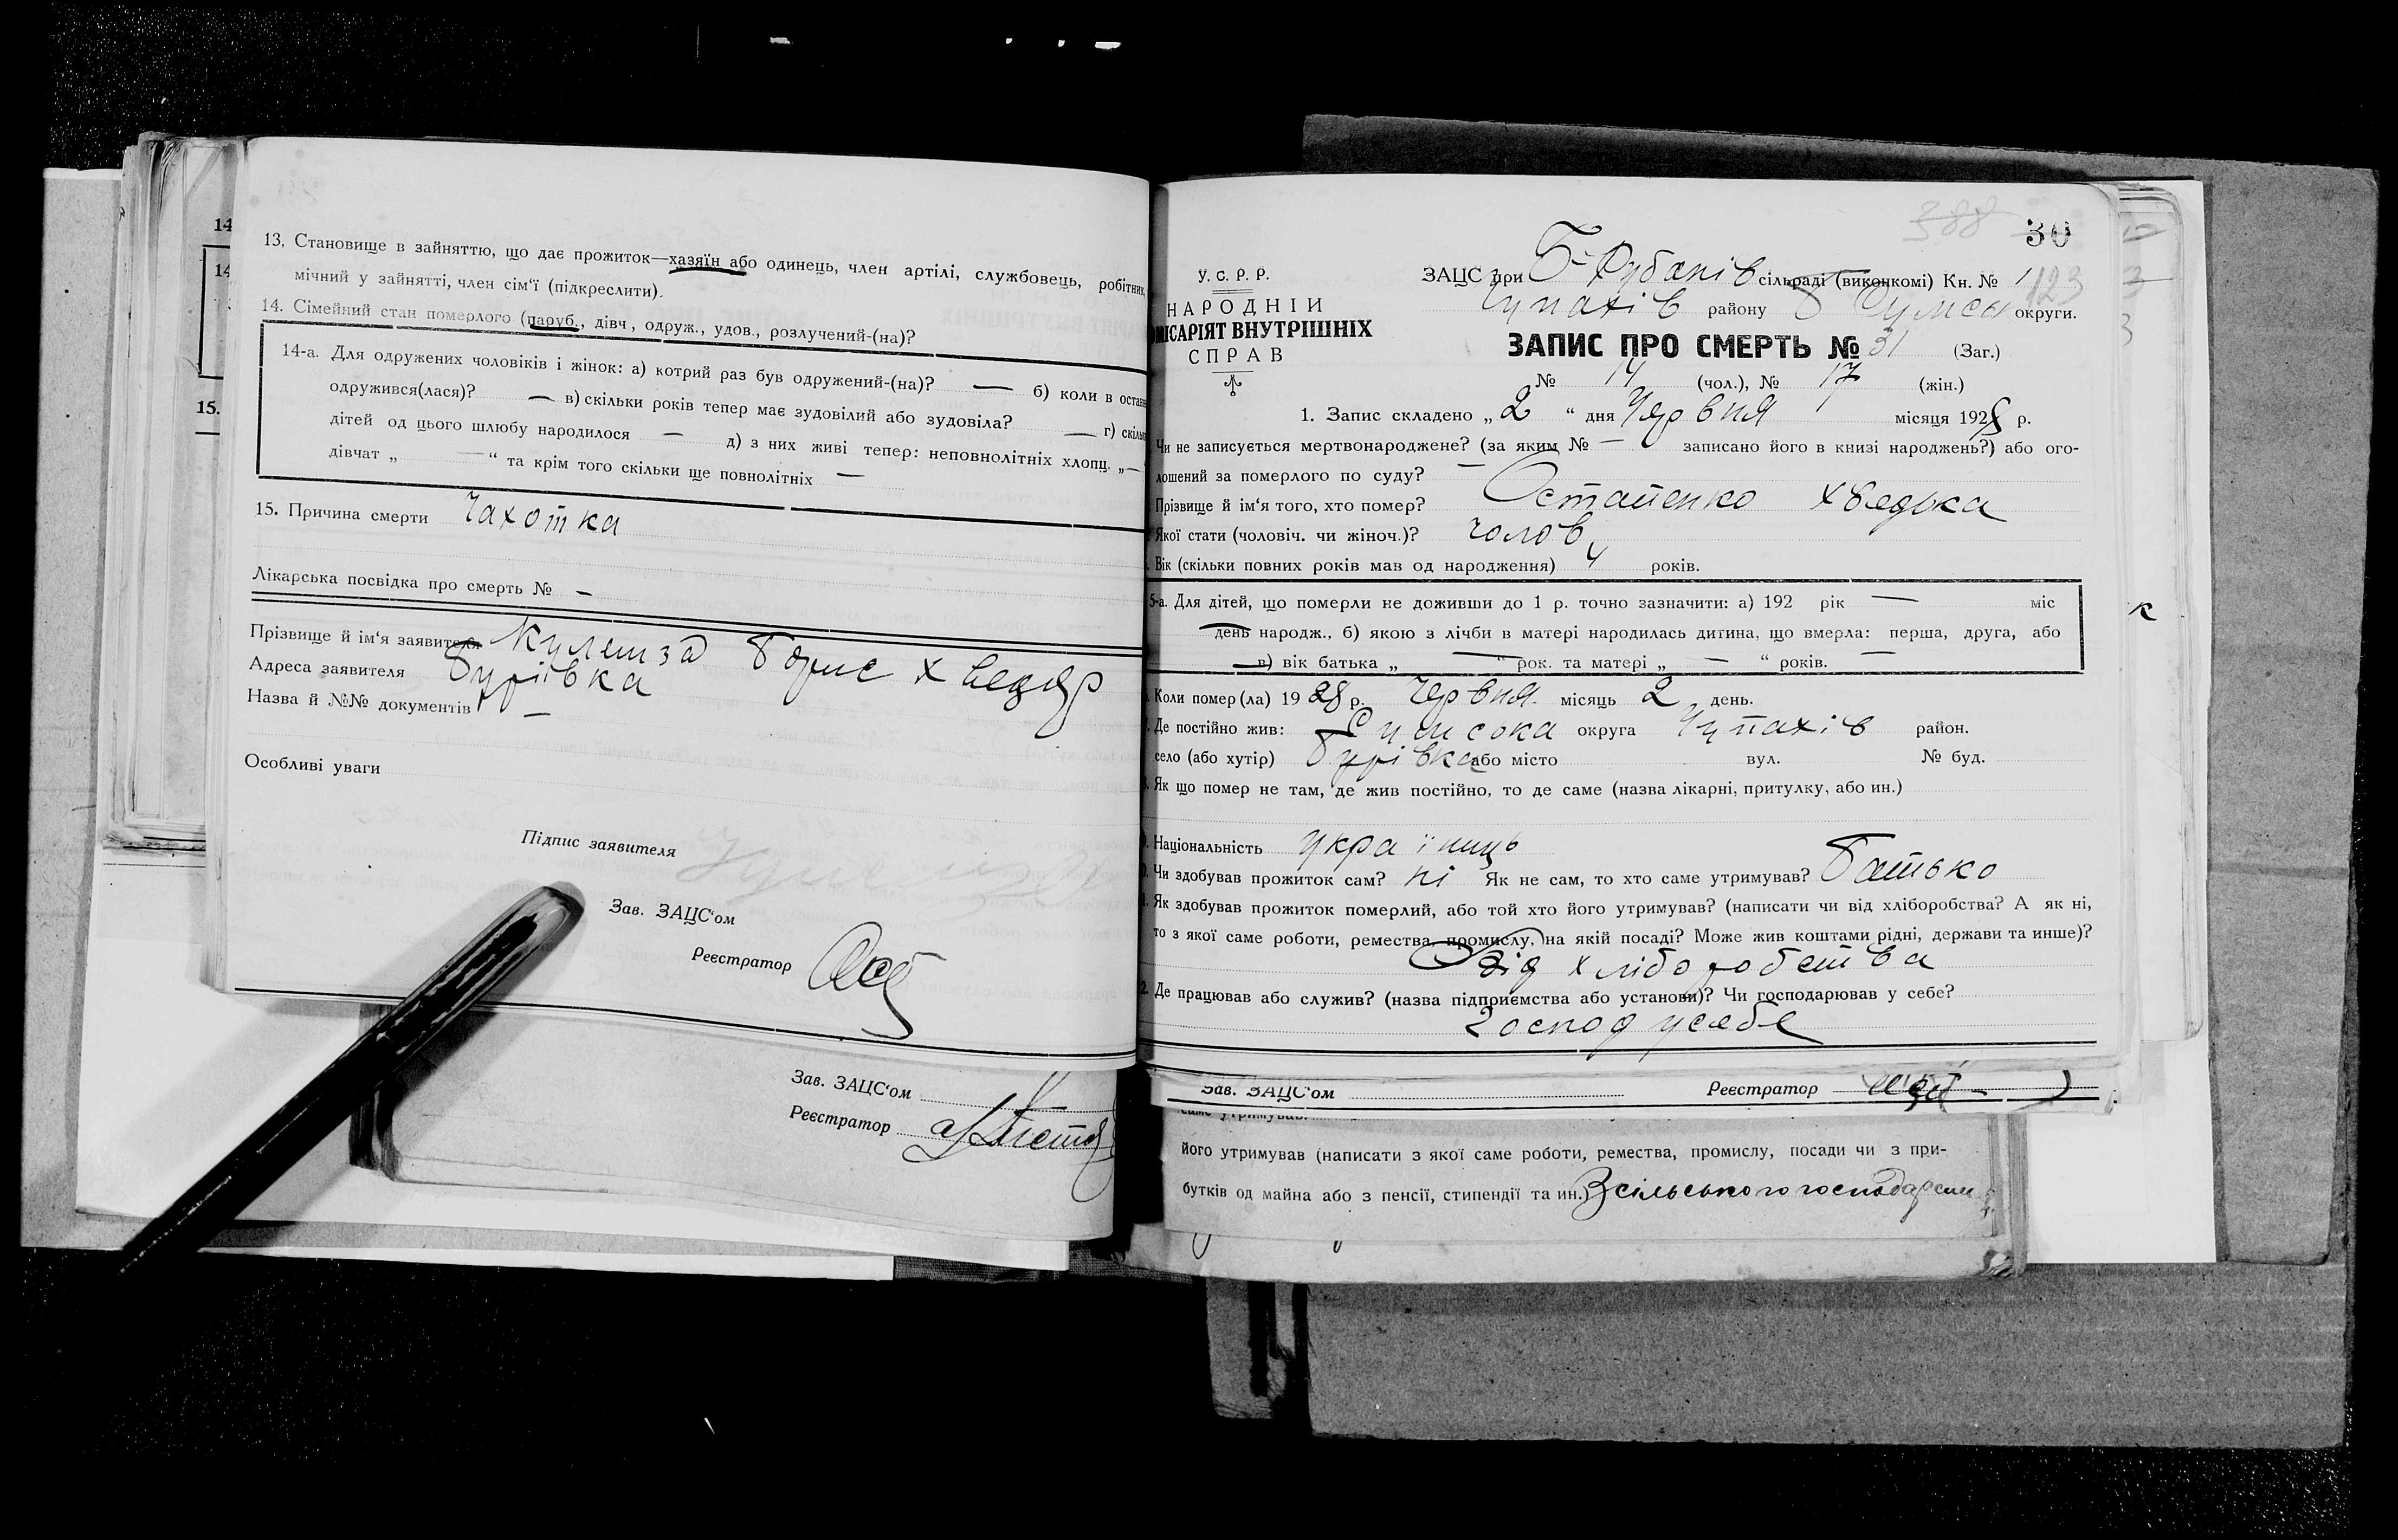 14
14
15.
13. Становище в зайняттю, що дає прожиток—хазяїн або одинець, член артілі, службовець, робітник,
мічний у зайнятті, член сім'ї (підкреслити).
14. Сімейний стан померлого (паруб., дівч, одруж., удов., розлучений-(на)?
14-а. Для одружених чоловіків і жінок: а) котрий раз був одружений-(на)? — б) коли в остан
одружився(лася)? — в) скільки років тепер має зудовілий або зудовіла? — г) скіль
дітей од цього шлюбу народилося — д) з них живі тепер: неповнолітніх хлопц. „—
дівчат „ — “ та крім того скільки ще повнолітніх —
15. Причина смерти Чахотка
Лікарська посвідка про смерть № —
Прізвище й ім'я заявителя Борис Хведор
Адреса заявителя Бурівка
Назва й №№ документів —
Особливі уваги
Підпис заявителя
Зав. ЗАЦС'ом
Реєстратор
Зав. ЗАЦС'ом
Реєстратор
388
30
У. С. Р. Р.
НАРОДНІЙ
МІСАРІЯТ ВНУТРІШНІХ
СПРАВ
ЗАЦС при Б-Рубанів сільраді (виконкомі) Кн. № 1
123
Чупахів району Сумськ округи.
ЗАПИС ПРО СМЕРТЬ № 31 (Заг.)
№ 14 (чол.), № 17 (жін.)
1. Запис складено „ 2 “ дня Червня місяця 1928 р.
Чи не записується мертвонароджене? (за яким № — записано його в книзі народжень?) або ого-
лошений за померлого по суду? —
Прізвище й ім'я того, хто помер? Остапенко Хведька
Якої стати (чоловіч. чи жіноч.)? Чолов
Вік (скільки повних років мав од народження) 4 років.
5-а. Для дітей, що померли не доживши до 1 р. точно зазначити: а) 192 рік — міс
день народж., б) якою з лічби в матері народилась дитина, що вмерла: перша, друга, або
— в) вік батька „ — “ рок. та матері „ — “ років. —
к
Коли помер (ла) 1928 р. Червня місяць 2 день.
Де постійно жив: Сумська округа Чупахів район.
село (або хутір) Бурівка або місто вул. № буд.
Як що помер не там, де жив постійно, то де саме (назва лікарні, притулку, або ин.)
Національність Українць
Чи здобував прожиток сам? Ні Як не сам, то хто саме утримував? Батько
Як здобував прожиток померлий, або той хто його утримував? (написати чи від хліборобства? А як ні,
то з якої саме роботи, ремества, промислу, на якій посаді? Може жив коштами рідні, держави та инше)?
Від хліборобства
2. Де працював або служив? (назва підприємства або установи)? Чи господарював у себе?
Господ усебе
Зав. ЗАЦС'ом Реєстратор
саме утримував.
його утримував (написати з якої саме роботи, ремества, промислу, посади чи з при-
бутків од майна або з пенсії, стипендії та ин.) З сільського господарств